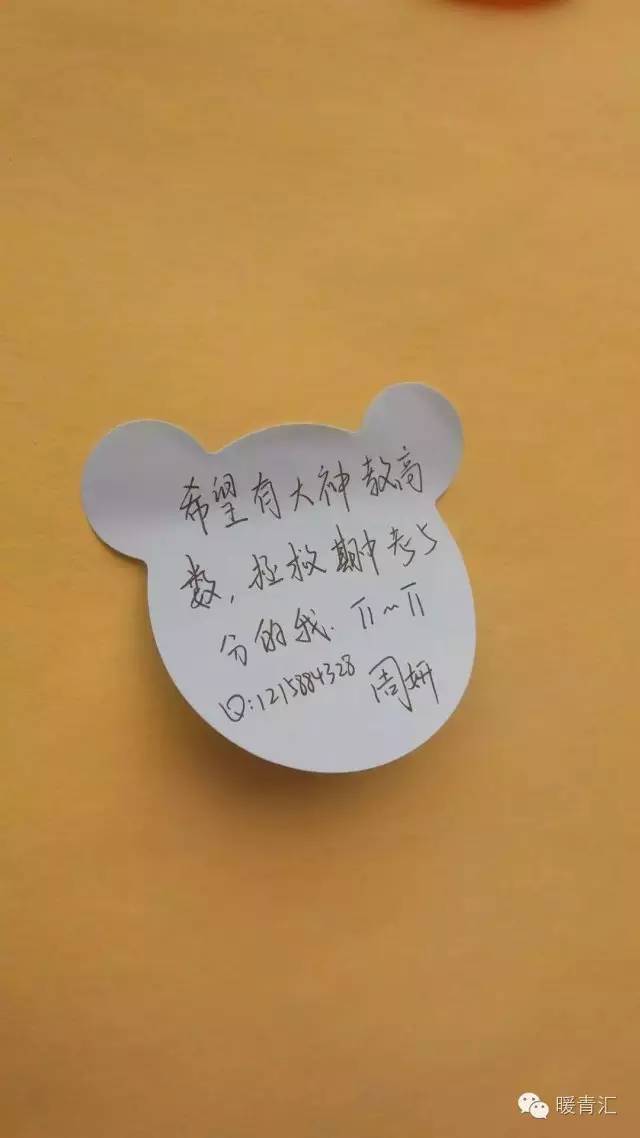 希望有大神教高
数,拯救期中考5
分的我. π~π
Q:1215884328 周妍
暖青汇